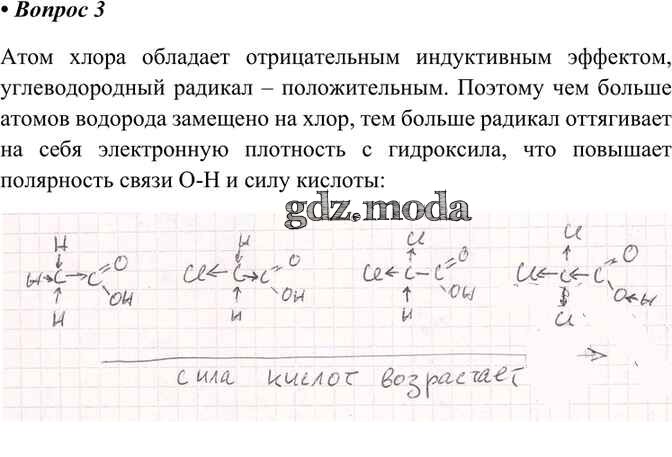 • Вопрос 3
Атом хлора обладает отрицательным индуктивным эффектом,
углеводородный радикал – положительным. Поэтому чем больше
атомов водорода замещено на хлор, тем больше радикал оттягивает
на себя электронную плотность с гидроксила, что повышает
полярность связи О-Н и силу кислоты:
gdz.moda
H H Cl Cl
H→C→C O OH Cl←C→C O OH Cl←C–C O OH Cl←C←C O O←H
H H H Cl
сила кислот возрастает